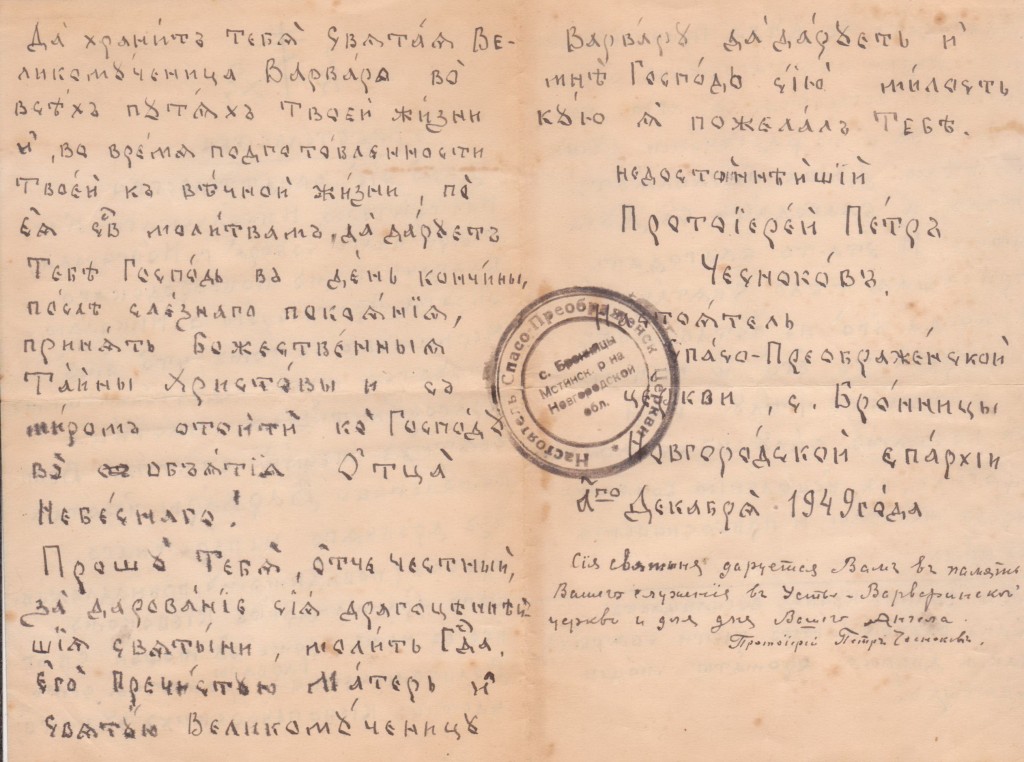 Да хранитъ тебѧ̀ Свѧта́ѧ Ве-
ликому́ченица Варва́ра во̀
всѣ́хъ путѧ́хъ твоей жи́зни
ѝ, во вре́мѧ подгото́вленности
твое́й къ вѣ́чной жи́зни, по̀
еѧ̀ св҃ молитвамъ, да да́руетъ
Тебѣ̀ Госпо́дь въ де́нь кончи́ны,
по́слѣ сле́знаго покоѧ́нїѧ,
приня́ть Боже́ственныѧ
Та́йны Христо́вы и съ
ми́ромъ отойти́ ко̀ Го́споду
во̀ объѧ́тїѧ О҆тца̀
Небе́снаго!
Прошу̀ Тебѧ̀, о҆́тче честны́й,
за̀ дарова́нїе сїѧ̀ драгоцѣ́ннѣй-
шїѧ свѧты́ни, моли́ть Гд҃а,
є҆го̀ Пречи́стую Ма́терь и҆
свѧту́ю Великому́ченицу
Варва́ру да да́руетъ и҆
мнѣ̀ Госпо́дь сїю̀ ми́лость
ку́ю ѧ̀ пожела́лъ Тебѣ̀.
недосто́йнѣйшїй
Протоїере́й Пе́тръ
Чесноко́въ,
Настоѧ́тель
Спа́со-Преображе́нской
це́ркви, с. Бро́нницы
Новгоро́дской епа́рхїи
Декабрѧ̀ 1949 го́да
Настоятель Спасо-Преображенск. Церкви
с. Бронницы
Мстинск. р-на
Новгородской
обл.
Сія святыня даруется Вамъ въ память
Вашего служенія въ Усть-Варваринской
церкви и для дня Вашего Ангела.
Протоіерей Петръ Чесноковъ.